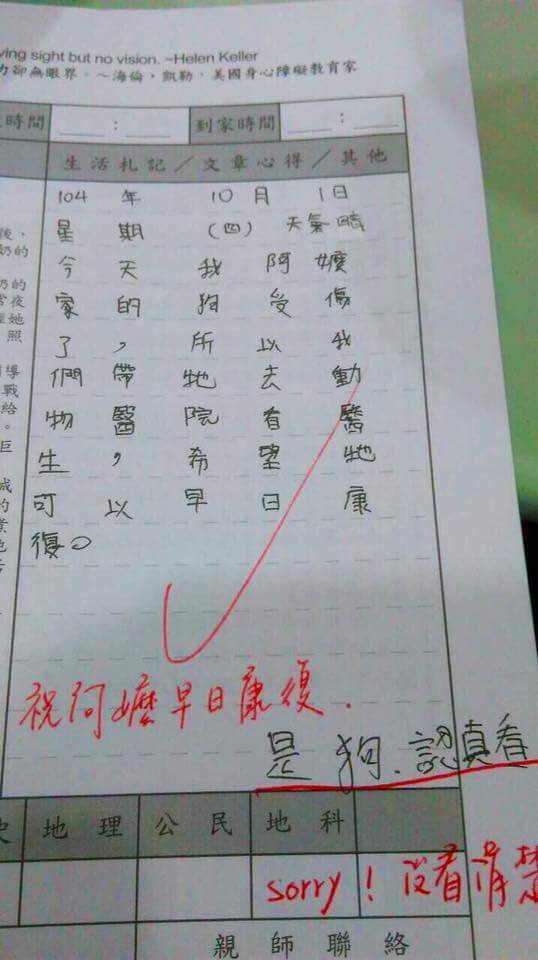 ving sight but no vision. ~Helen Keller
力卻無眼界。~海倫・凱勒，美國身心障礙教育家
時間 ： 到家時間 ：
生活札記／文章心得／其他
104 年 10 月 1日
星期（四）天氣晴
今天我阿嬤
家的狗受傷
了，所以我
們帶牠去動
物醫院看醫
生，希望牠
可以早日康
復。
祝阿嬤早日康復.
是狗.認真看
地理 公民 地科
sorry！沒看清楚
親師聯絡